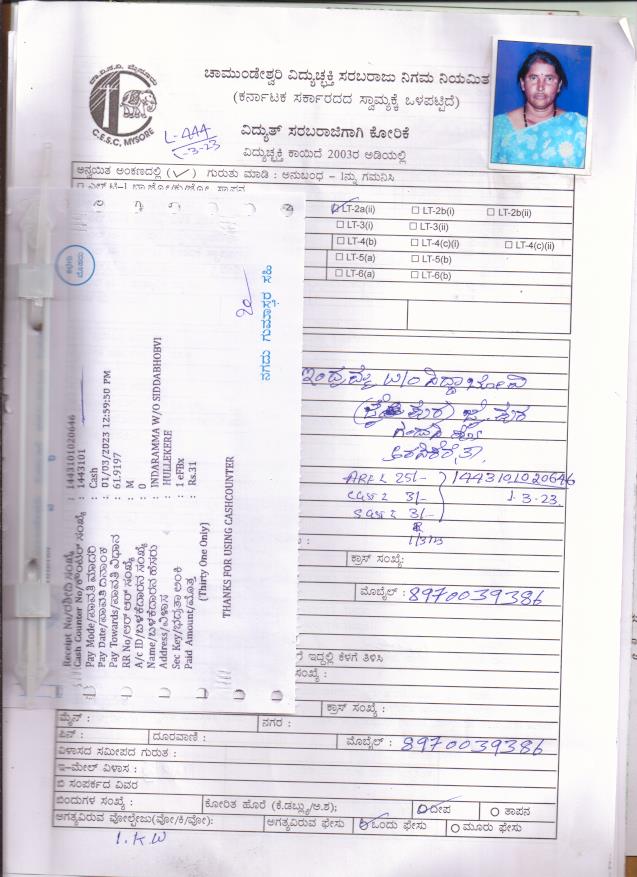 ಚಾಮುಂಡೇಶ್ವರಿ ವಿದ್ಯುಚ್ಛಕ್ತಿ ಸರಬರಾಜು ನಿಗಮ ನಿಯಮಿತ
(ಕರ್ನಾಟಕ ಸರ್ಕಾರದದ ಸ್ವಾಮ್ಯಕ್ಕೆ ಒಳಪಟ್ಟಿದೆ)
C.E.S.C, MYSORE
L-444
1-3-23
ವಿದ್ಯುತ್ ಸರಬರಾಜಿಗಾಗಿ ಕೋರಿಕೆ
ವಿದ್ಯುಚ್ಛಕ್ತಿ ಕಾಯಿದೆ 2003ರ ಅಡಿಯಲ್ಲಿ
ಅನ್ವಯಿತ ಅಂಕಣದಲ್ಲಿ (✓) ಗುರುತು ಮಾಡಿ : ಅನುಬಂಧ - 1ನ್ನು ಗಮನಿಸಿ
LT-2a(ii) LT-2b(i) LT-2b(ii)
LT-3(i) LT-3(ii)
LT-4(b) LT-4(c)(i) LT-4(c)(ii)
LT-5(a) LT-5(b)
LT-6(a) LT-6(b)
Receipt No/ರಶೀದಿ ಸಂಖ್ಯೆ : 1443101020646
Cash Counter No/ಕೌಂಟರ್ ಸಂಖ್ಯೆ : 1443101
Pay Mode/ಪಾವತಿ ಮಾದರಿ : Cash
Pay Date/ಪಾವತಿ ದಿನಾಂಕ : 01/03/2023 12:59:50 PM
Pay Towards/ಪಾವತಿ ವಿಧಾನ : 61.9197
RR No/ಆರ್ ಆರ್ ಸಂಖ್ಯೆ : M
A/c ID/ಬಳಕೆದಾರನ ಸಂಖ್ಯೆ : 0
Name/ಬಳಕೆದಾರನ ಹೆಸರು : INDARAMMA W/O SIDDABHOBVI
Address/ವಿಳಾಸ : HULLEKERE
Sec Key/ಭದ್ರತಾ ಅಂಕಿ : 1 eFBx
Paid Amount/ಮೊತ್ತ : Rs.31
(Thirty One Only)
THANKS FOR USING CASHCOUNTER
ನಗದು ಗುಮಾಸ್ತರ ಸಹಿ
25/- 1443101020646
3/- 1.3.23
3/-
ಕ್ರಾಸ್ ಸಂಖ್ಯೆ:
ಮೊಬೈಲ್ : 8970039386
ಇದ್ದಲ್ಲಿ ಕೆಳಗೆ ತಿಳಿಸಿ
ಸಂಖ್ಯೆ :
ಕ್ರಾಸ್ ಸಂಖ್ಯೆ :
ಮೈನ್ : ನಗರ :
ಪಿನ್ : ದೂರವಾಣಿ : ಮೊಬೈಲ್ : 8970039386
ವಿಳಾಸದ ಸಮೀಪದ ಗುರುತ :
ಇ-ಮೇಲ್ ವಿಳಾಸ :
ಬಿ ಸಂಪರ್ಕದ ವಿವರ
ಬಿಂದುಗಳ ಸಂಖ್ಯೆ : ಕೋರಿತ ಹೊರೆ (ಕೆ.ಡಬ್ಲ್ಯು/ಅ.ಶ); ದೀಪ ತಾಪನ
ಅಗತ್ಯವಿರುವ ವೋಲ್ಟೇಜು(ವೋ/ಕಿ/ವೋ): ಅಗತ್ಯವಿರುವ ಫೇಸು ಒಂದು ಫೇಸು ಮೂರು ಫೇಸು
1.KW